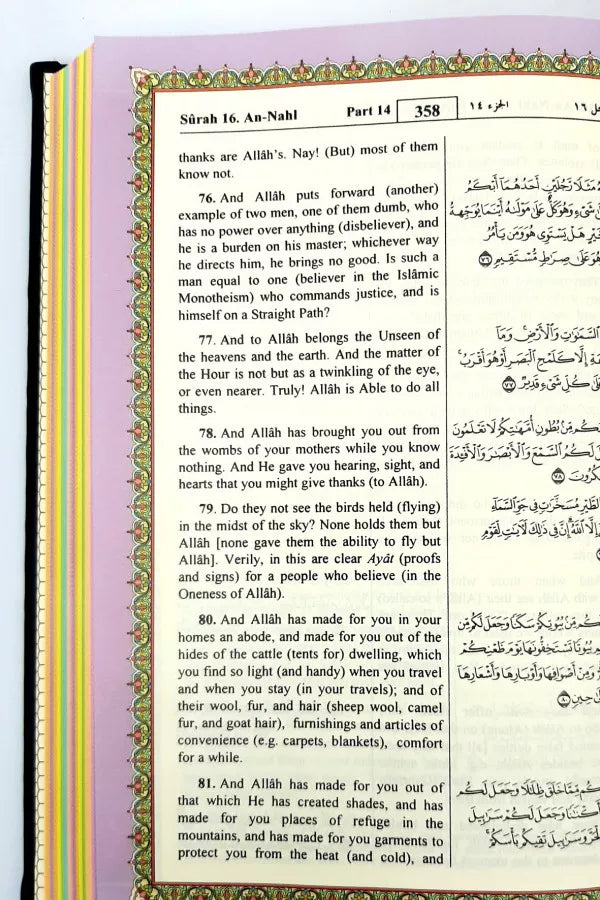 Sûrah 16. An-Nahl Part 14 358 الجزء ١٤ ١٦
thanks are Allâh's. Nay! (But) most of them
know not.
76. And Allâh puts forward (another)
example of two men, one of them dumb, who
has no power over anything (disbeliever), and
he is a burden on his master; whichever way
he directs him, he brings no good. Is such a
man equal to one (believer in the Islâmic
Monotheism) who commands justice, and is
himself on a Straight Path?
77. And to Allâh belongs the Unseen of
the heavens and the earth. And the matter of
the Hour is not but as a twinkling of the eye,
or even nearer. Truly! Allâh is Able to do all
things.
78. And Allâh has brought you out from
the wombs of your mothers while you know
nothing. And He gave you hearing, sight, and
hearts that you might give thanks (to Allâh).
79. Do they not see the birds held (flying)
in the midst of the sky? None holds them but
Allâh [none gave them the ability to fly but
Allâh]. Verily, in this are clear Ayât (proofs
and signs) for a people who believe (in the
Oneness of Allâh).
80. And Allâh has made for you in your
homes an abode, and made for you out of the
hides of the cattle (tents for) dwelling, which
you find so light (and handy) when you travel
and when you stay (in your travels); and of
their wool, fur, and hair (sheep wool, camel
fur, and goat hair), furnishings and articles of
convenience (e.g. carpets, blankets), comfort
for a while.
81. And Allâh has made for you out of
that which He has created shades, and has
made for you places of refuge in the
mountains, and has made you garments to
protect you from the heat (and cold), and
مَثَلًا رَّجُلَيْنِ أَحَدُهُمَآ أَبْكَمُ
شَىْءٍ وَهُوَ كَلٌّ عَلَىٰ مَوْلَىٰهُ أَيْنَمَا يُوَجِّههُّ
هَلْ يَسْتَوِى هُوَ وَمَن يَأْمُرُ
عَلَىٰ صِرَٰطٍ مُّسْتَقِيمٍ ٧٦
السَّمَٰوَٰتِ وَالْأَرْضِ ۚ وَمَآ
إِلَّا كَلَمْحِ الْبَصَرِ أَوْ هُوَ أَقْرَبُ ۚ
كُلِّ شَىْءٍ قَدِيرٌ ٧٧
مِّنۢ بُطُونِ أُمَّهَٰتِكُمْ لَا تَعْلَمُونَ
لَكُمُ السَّمْعَ وَالْأَبْصَٰرَ وَالْأَفْـِٔدَةَ
٧٨
الطَّيْرِ مُسَخَّرَٰتٍ فِى جَوِّ السَّمَآءِ
إِلَّا اللَّهُ ۗ إِنَّ فِى ذَٰلِكَ لَءَايَٰتٍ لِّقَوْمٍ
مِّنۢ بُيُوتِكُمْ سَكَنًا وَجَعَلَ لَكُم مِّن
بُيُوتًا تَسْتَخِفُّونَهَا يَوْمَ ظَعْنِكُمْ
وَمِنْ أَصْوَافِهَا وَأَوْبَارِهَا وَأَشْعَارِهَآ
حِينٍ ٨٠
مِّمَّا خَلَقَ ظِلَٰلًا وَجَعَلَ لَكُم
أَكْنَٰنًا وَجَعَلَ لَكُمْ سَرَٰبِيلَ
وَسَرَٰبِيلَ تَقِيكُم بَأْسَكُمْ ۚ